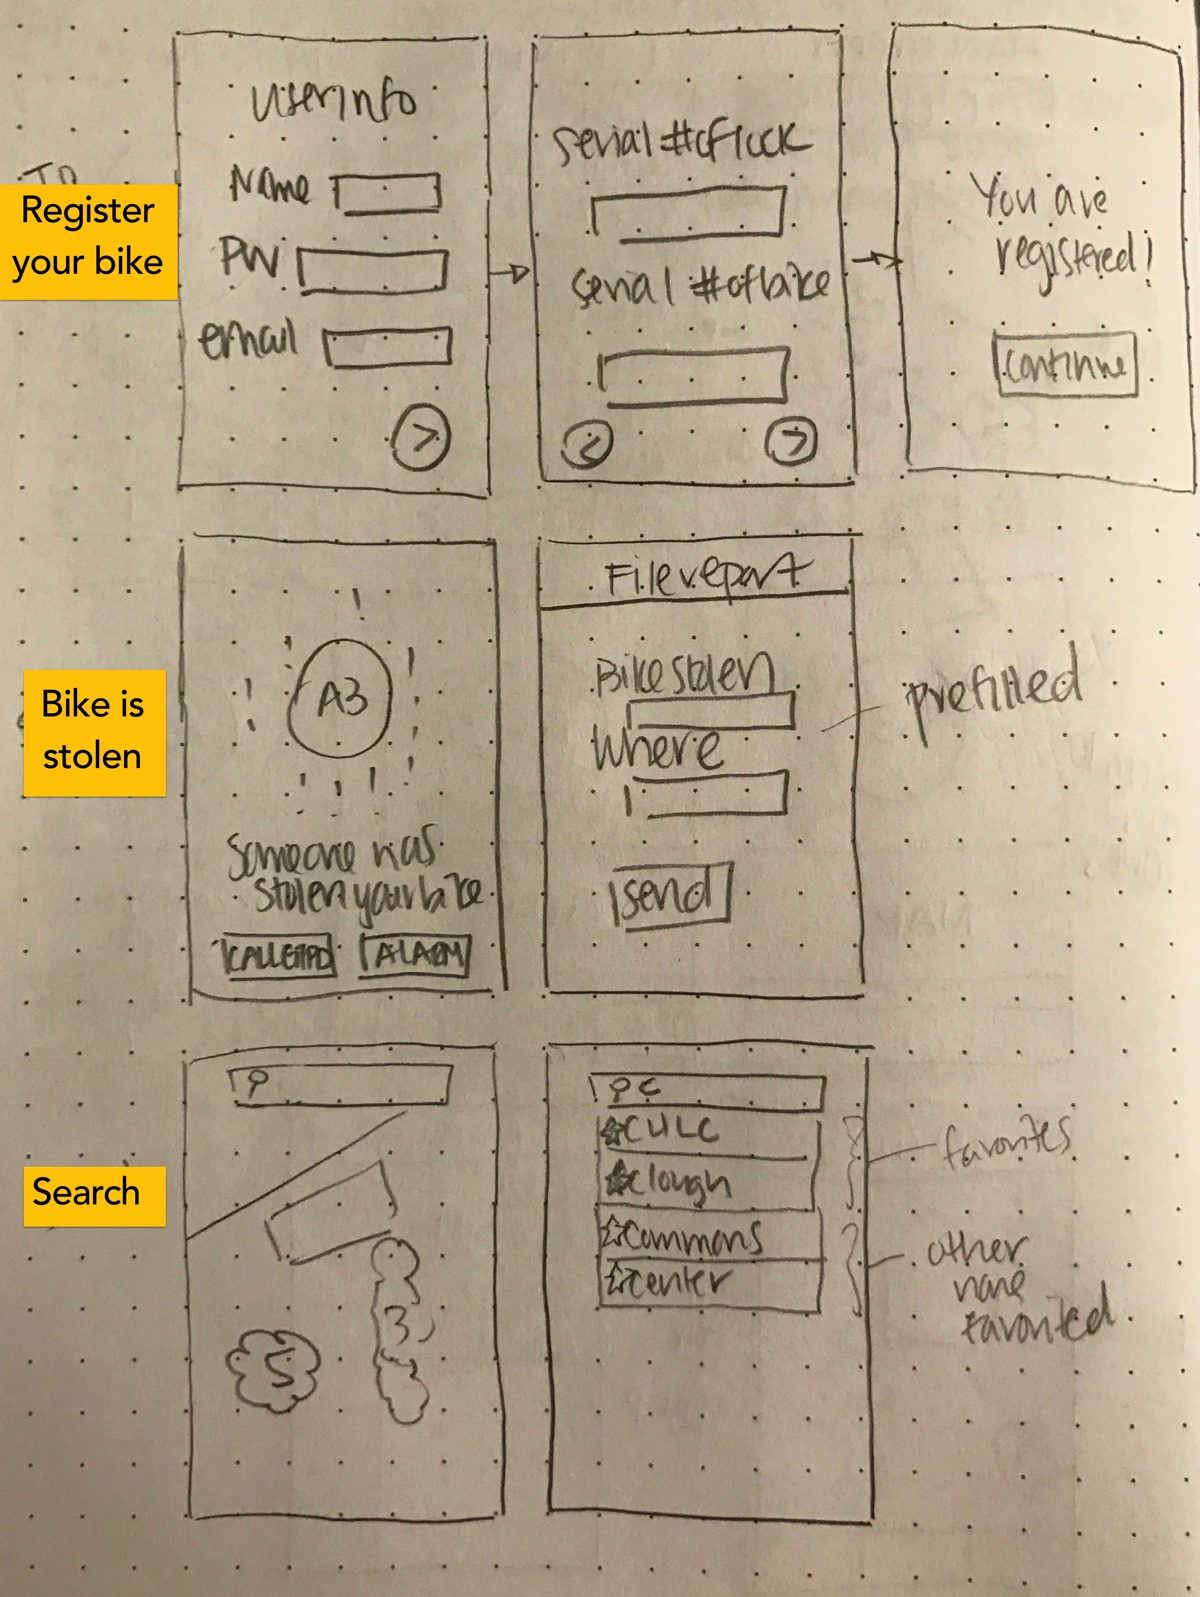 Register
your bike
user info
Name
PW
email
>
serial # of lock
serial # of bike
<
>
You are
registered!
continue
Bike is
stolen
A3
Someone has
stolen your bike
CALL GTPD
ALARM
File report
Bike stolen
Where
send
prefilled
Search
5
3
C
CULC
Clough
Commons
Center
favorites
other
none
favorited